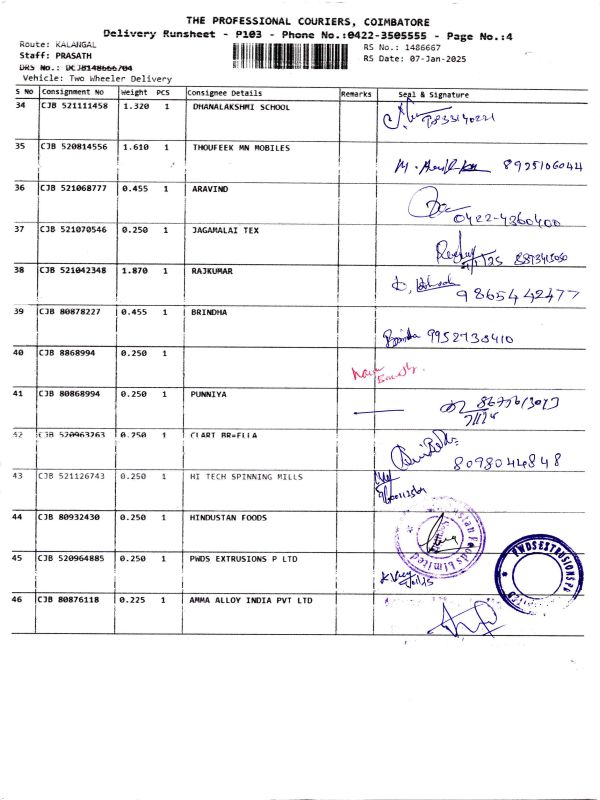 THE PROFESSIONAL COURIERS, COIMBATORE
Delivery Runsheet - P103 - Phone No.:0422-3505555 - Page No.:4
Route: KALANGAL
RS No.: 1486667
Staff: PRASATH
RS Date: 07-Jan-2025
DRS No.: DCJB148666704
Vehicle: Two Wheeler Delivery
S No Consignment No Weight PCS Consignee Details Remarks Seal & Signature
34 CJB 521111458 1.320 1 DHANALAKSHMI SCHOOL
35 CJB 520814556 1.610 1 THOUFEEK MN MOBILES
8925106044
36 CJB 521068777 0.455 1 ARAVIND
0422-4360400
37 CJB 521070546 0.250 1 JAGAMALAI TEX
38 CJB 521042348 1.870 1 RAJKUMAR
9865442477
39 CJB 80878227 0.455 1 BRINDHA
Brindha 9952738410
40 CJB 8868994 0.250 1
41 CJB 80868994 0.250 1 PUNNIYA
42 CJB 520963263 0.250 1 CLART BR=ELLA
8098044848
43 CJB 521126743 0.250 1 HI TECH SPINNING MILLS
44 CJB 80932430 0.250 1 HINDUSTAN FOODS
Hindustan Foods Limited
45 CJB 520964885 0.250 1 PWDS EXTRUSIONS P LTD
PWDS EXTRUSIONS P
46 CJB 80876118 0.225 1 AMMA ALLOY INDIA PVT LTD